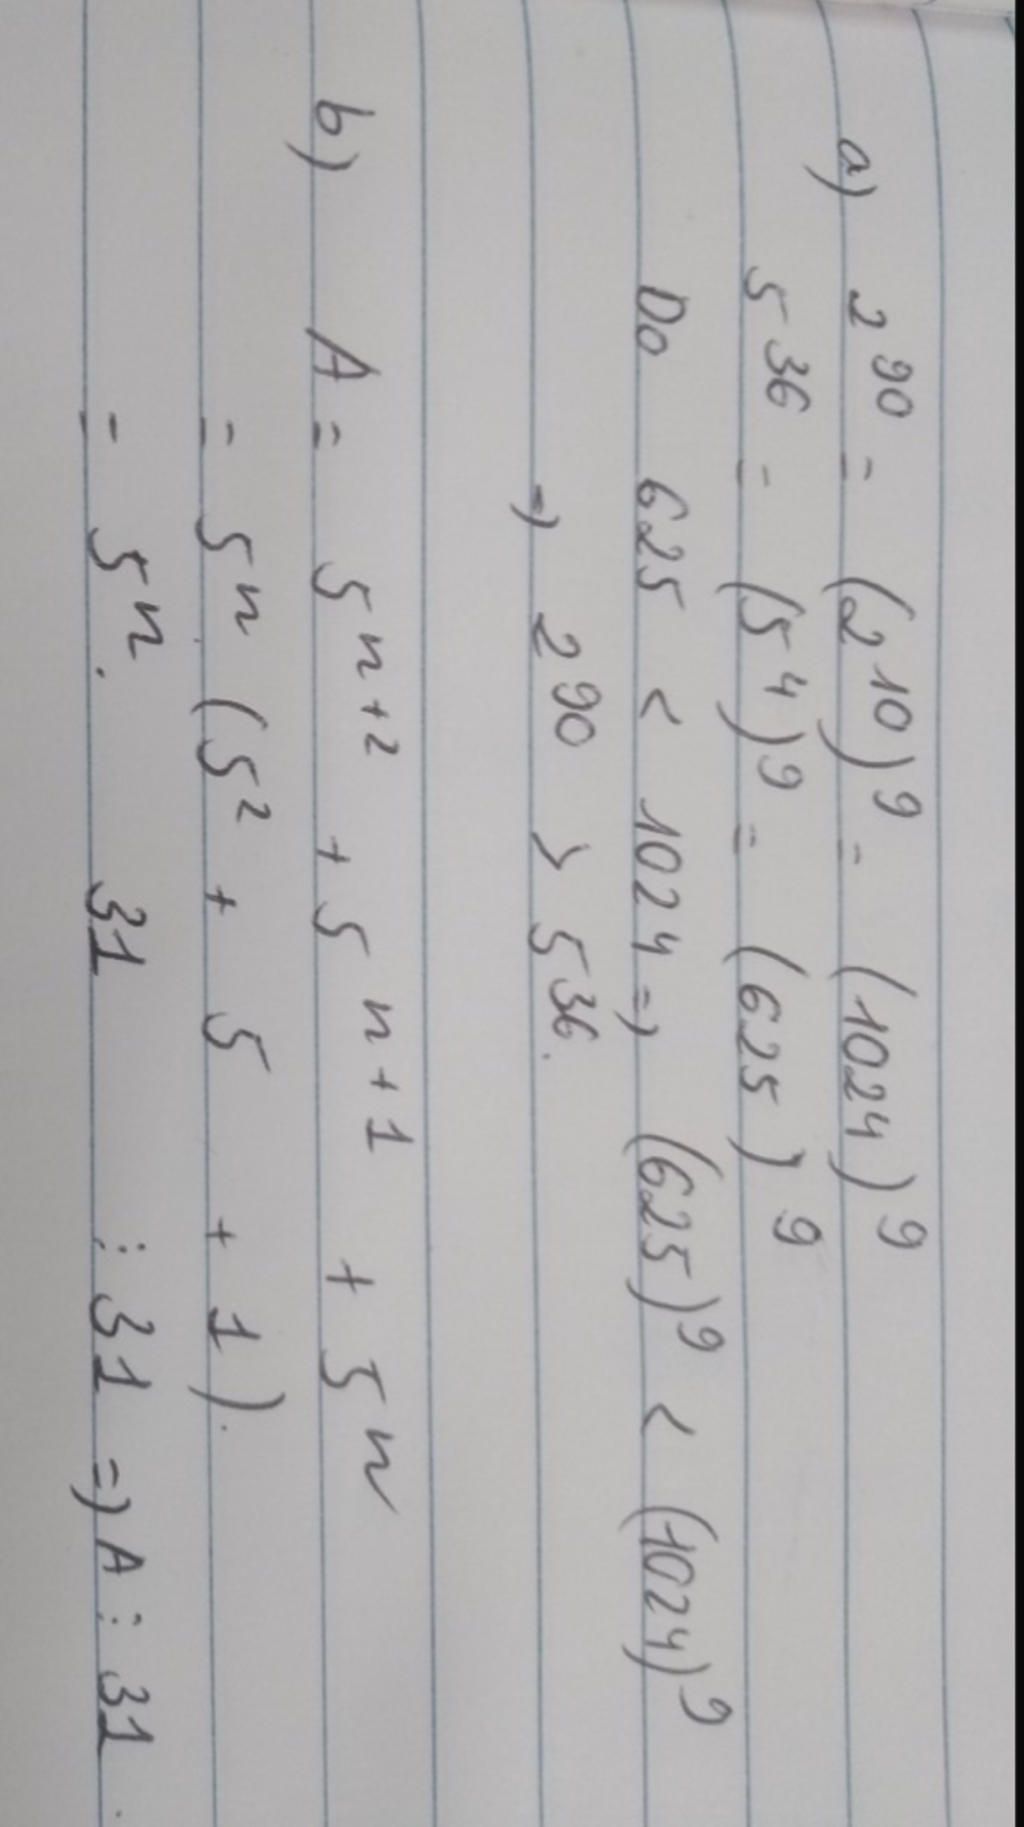 a) 2^90 = (2^10)^9 = (1024)^9
5^36 = (5^4)^9 = (625)^9
Do 625 < 1024 => (625)^9 < (1024)^9
=> 2^90 > 5^36.
b) A = 5^n+2 + 5^n+1 + 5^n
= 5^n (5^2 + 5 + 1).
= 5^n. 31 ⋮ 31 => A ⋮ 31.